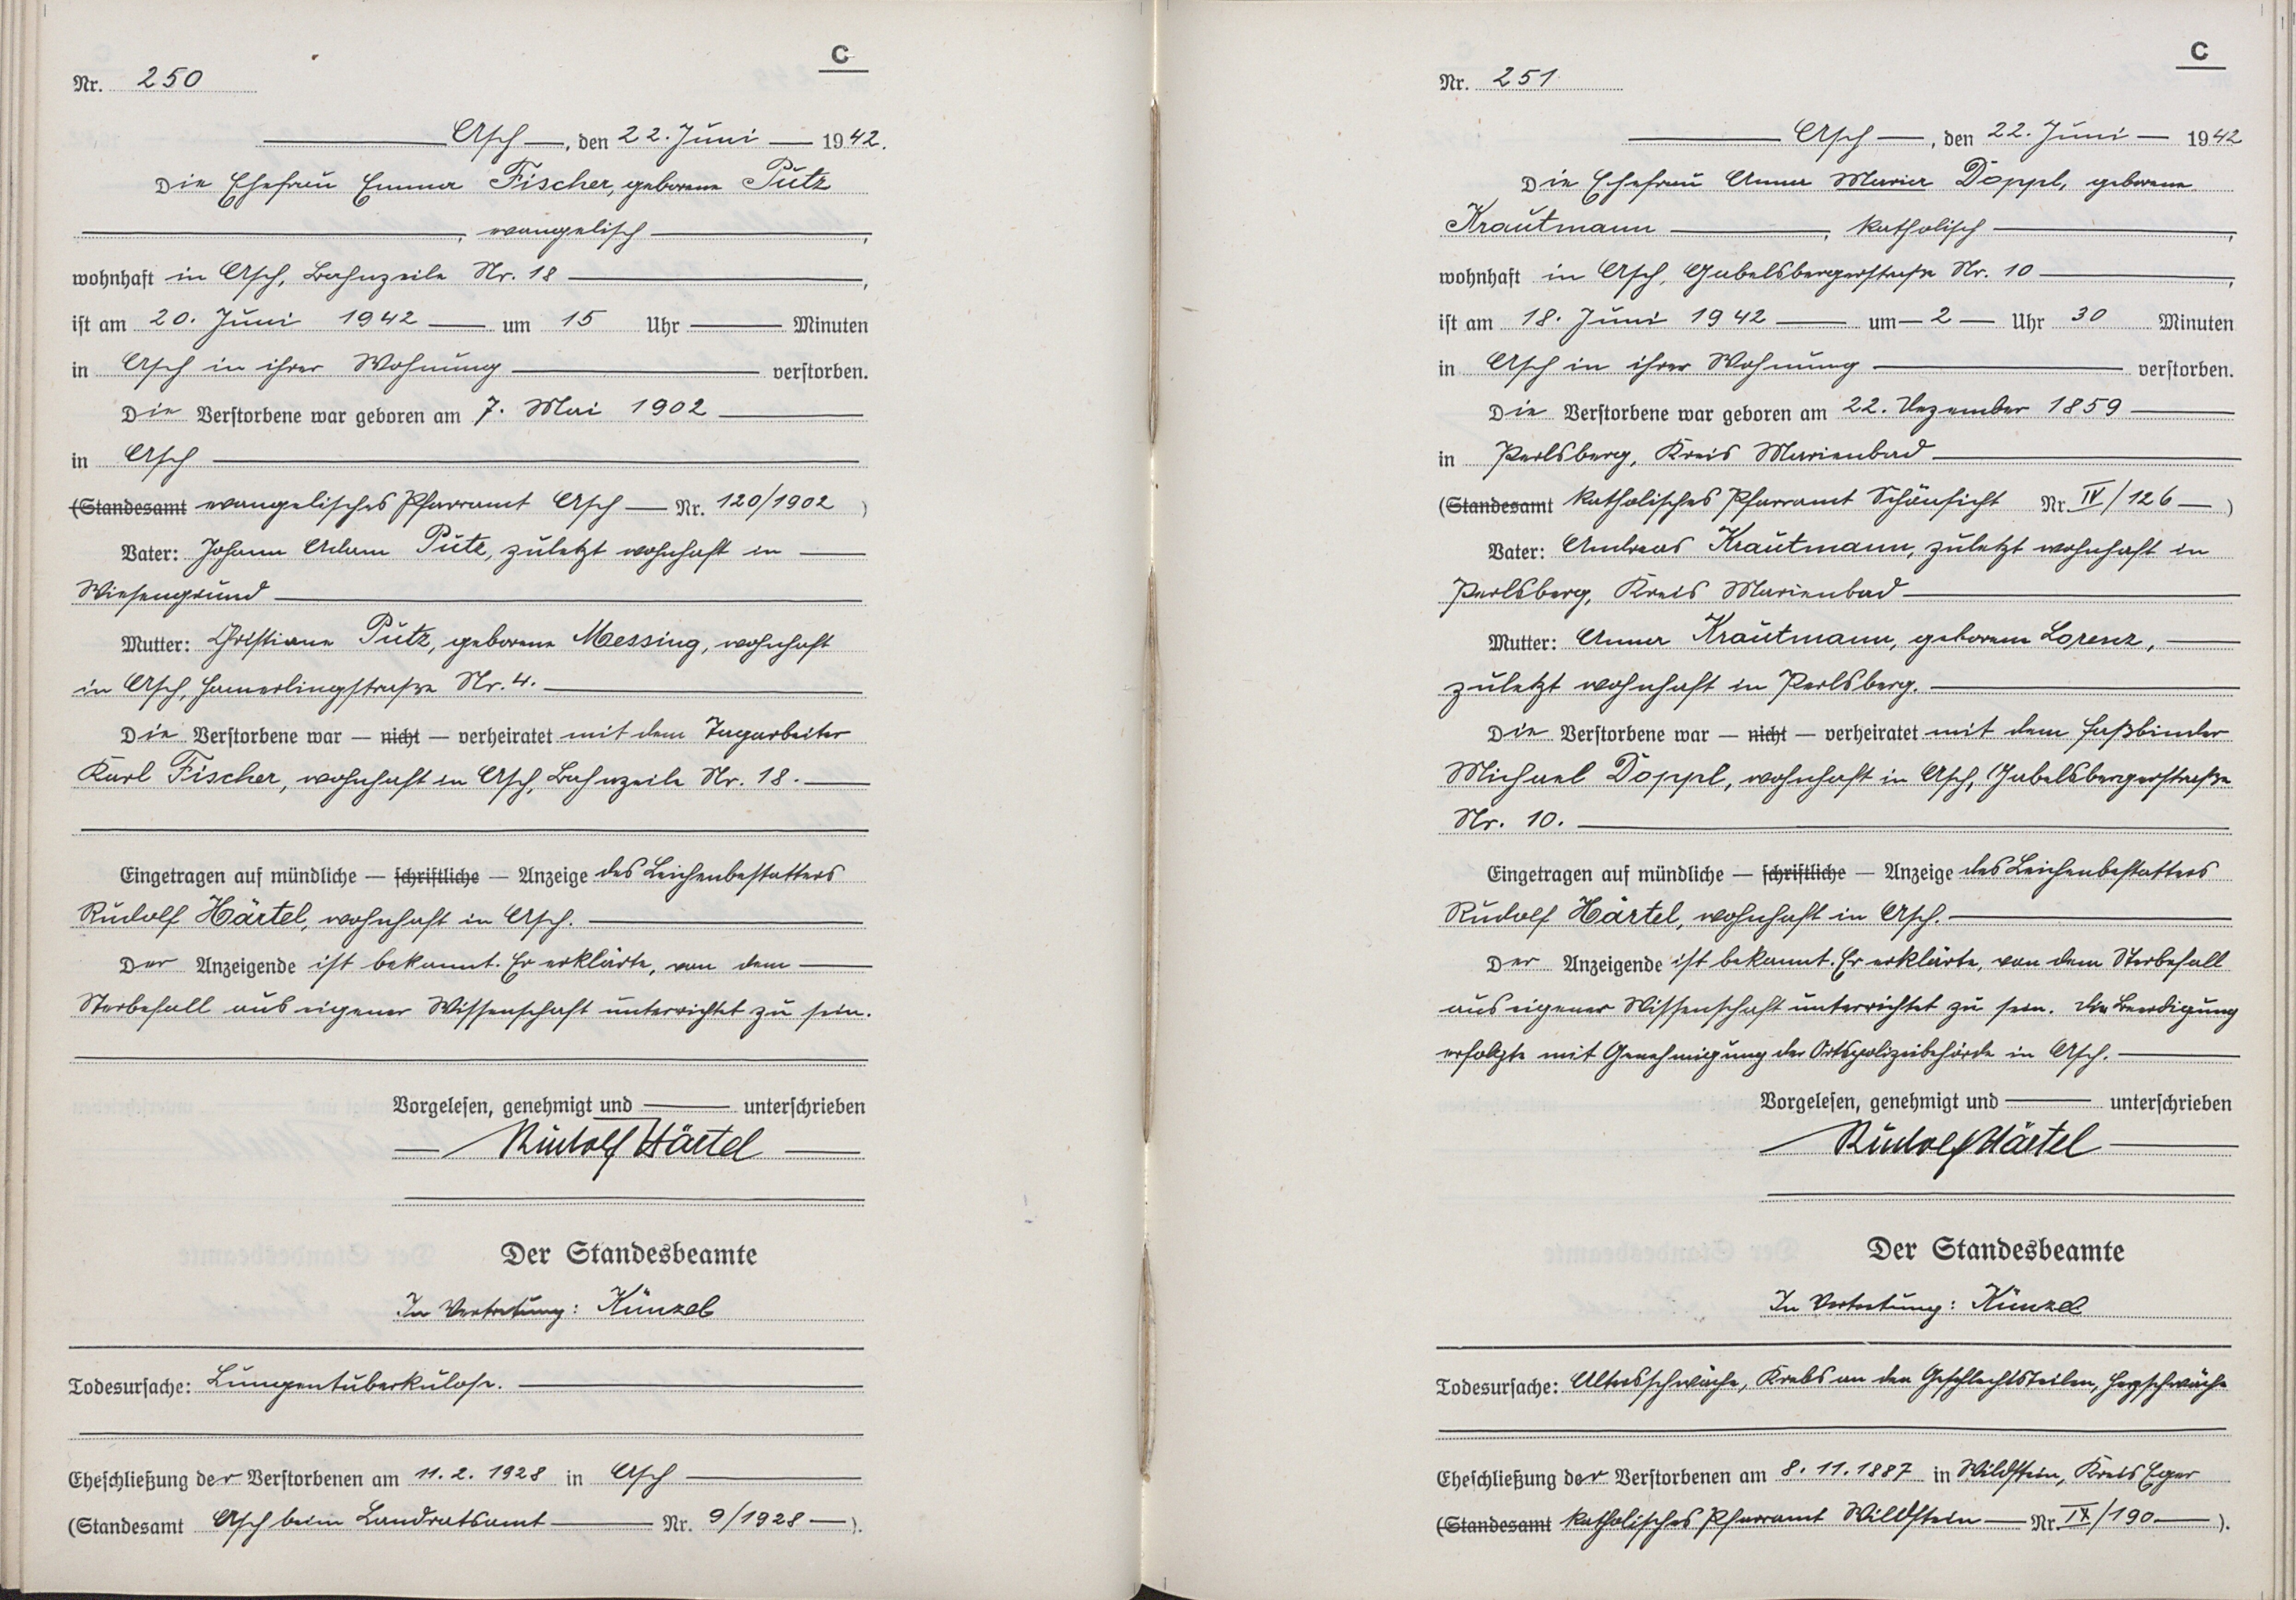 C
Nr. 250
Asch, den 22. Juni 1942.
Die Ehefrau Emma Fischer, geborene Putz
, evangelisch ,
wohnhaft in Asch, Bahnzeile Nr. 18 ,
ist am 20. Juni 1942 um 15 Uhr Minuten
in Asch in ihrer Wohnung verstorben.
Die Verstorbene war geboren am 7. Mai 1902
in Asch
(Standesamt evangelisches Pfarramt Asch Nr. 120/1902 )
Vater: Johann Adam Putz, zuletzt wohnhaft in
Wiesengrund
Mutter: Christiane Putz, geborene Messing, wohnhaft
in Asch, Hamerlingstraße Nr. 4.
Die Verstorbene war — nicht — verheiratet mit dem Tagarbeiter
Karl Fischer, wohnhaft in Asch, Bahnzeile Nr. 18.
Eingetragen auf mündliche — schriftliche — Anzeige des Leichenbestatters
Rudolf Härtel, wohnhaft in Asch.
Der Anzeigende ist bekannt. Er erklärte, von dem
Sterbefall aus eigener Wissenschaft unterrichtet zu sein.
Vorgelesen, genehmigt und unterschrieben
Rudolf Härtel
Der Standesbeamte
In Vertretung: Künzel
Todesursache: Lungentuberkulose.
Eheschließung der Verstorbenen am 11.2.1928 in Asch
(Standesamt Asch beim Landratsamt Nr. 9/1928 ).
C
Nr. 251
Asch, den 22. Juni 1942
Die Ehefrau Anna Maria Doppl, geborene
Krautmann , katholisch ,
wohnhaft in Asch, Gabelsbergerstraße Nr. 10 ,
ist am 18. Juni 1942 um 2 Uhr 30 Minuten
in Asch in ihrer Wohnung verstorben.
Die Verstorbene war geboren am 22. Dezember 1859
in Perlsberg, Kreis Marienbad
(Standesamt katholisches Pfarramt Schönficht Nr. IV/126 )
Vater: Andreas Krautmann, zuletzt wohnhaft in
Perlsberg, Kreis Marienbad
Mutter: Anna Krautmann, geborene Lorenz,
zuletzt wohnhaft in Perlsberg.
Die Verstorbene war — nicht — verheiratet mit dem Faßbinder
Michael Doppl, wohnhaft in Asch, Gabelsbergerstraße
Nr. 10.
Eingetragen auf mündliche — schriftliche — Anzeige des Leichenbestatters
Rudolf Härtel, wohnhaft in Asch.
Der Anzeigende ist bekannt. Er erklärte, von dem Sterbefall
aus eigener Wissenschaft unterrichtet zu sein. Die Beerdigung
erfolgte mit Genehmigung der Ortspolizeibehörde in Asch.
Vorgelesen, genehmigt und unterschrieben
Rudolf Härtel
Der Standesbeamte
In Vertretung: Künzel
Todesursache: Altersschwäche, Krebs an den Geschlechtsteilen, Herzschwäche
Eheschließung der Verstorbenen am 8.11.1887 in Wildstein, Kreis Eger
(Standesamt katholisches Pfarramt Wildstein Nr. IX/190 ).